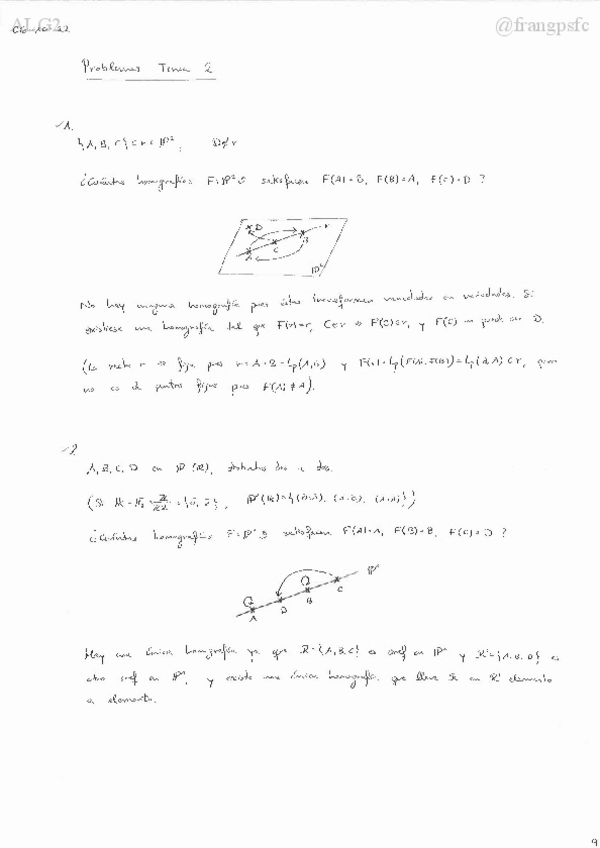 ALG2
@frangpsfc
Problemas Tema 2
1.
{A, B, C} ⊂ r ⊂ P², D ∉ r
¿Cuántas homografías F: P² ↺ satisfacen F(A) = B, F(B) = A, F(C) = D ?
D r
A C B
P²
No hay ninguna homografía pues éstas transforman variedades en variedades. Si
existiese una homografía tal que F(r) = r, C ∈ r ⇒ F(C) ∈ r, y F(C) no puede ser D.
(La recta r es fija pues r = A + B = Lp(A,B) y F(r) = Lp(F(A), F(B)) = Lp(B,A) ⊂ r, pero
no es de puntos fijos pues F(A) ≠ A).
2.
A, B, C, D en P¹(K), distintos dos a dos.
¿Cuántas homografías F: P¹ ↺ satisfacen F(A) = A, F(B) = B, F(C) = D ?
P¹
A D B C
Hay una única homografía ya que R = {A, B, C} es sref en P¹ y R' = {A, B, D} es
otro sref en P¹, y existe una única homografía que lleve R en R' elemento
a elemento.
9